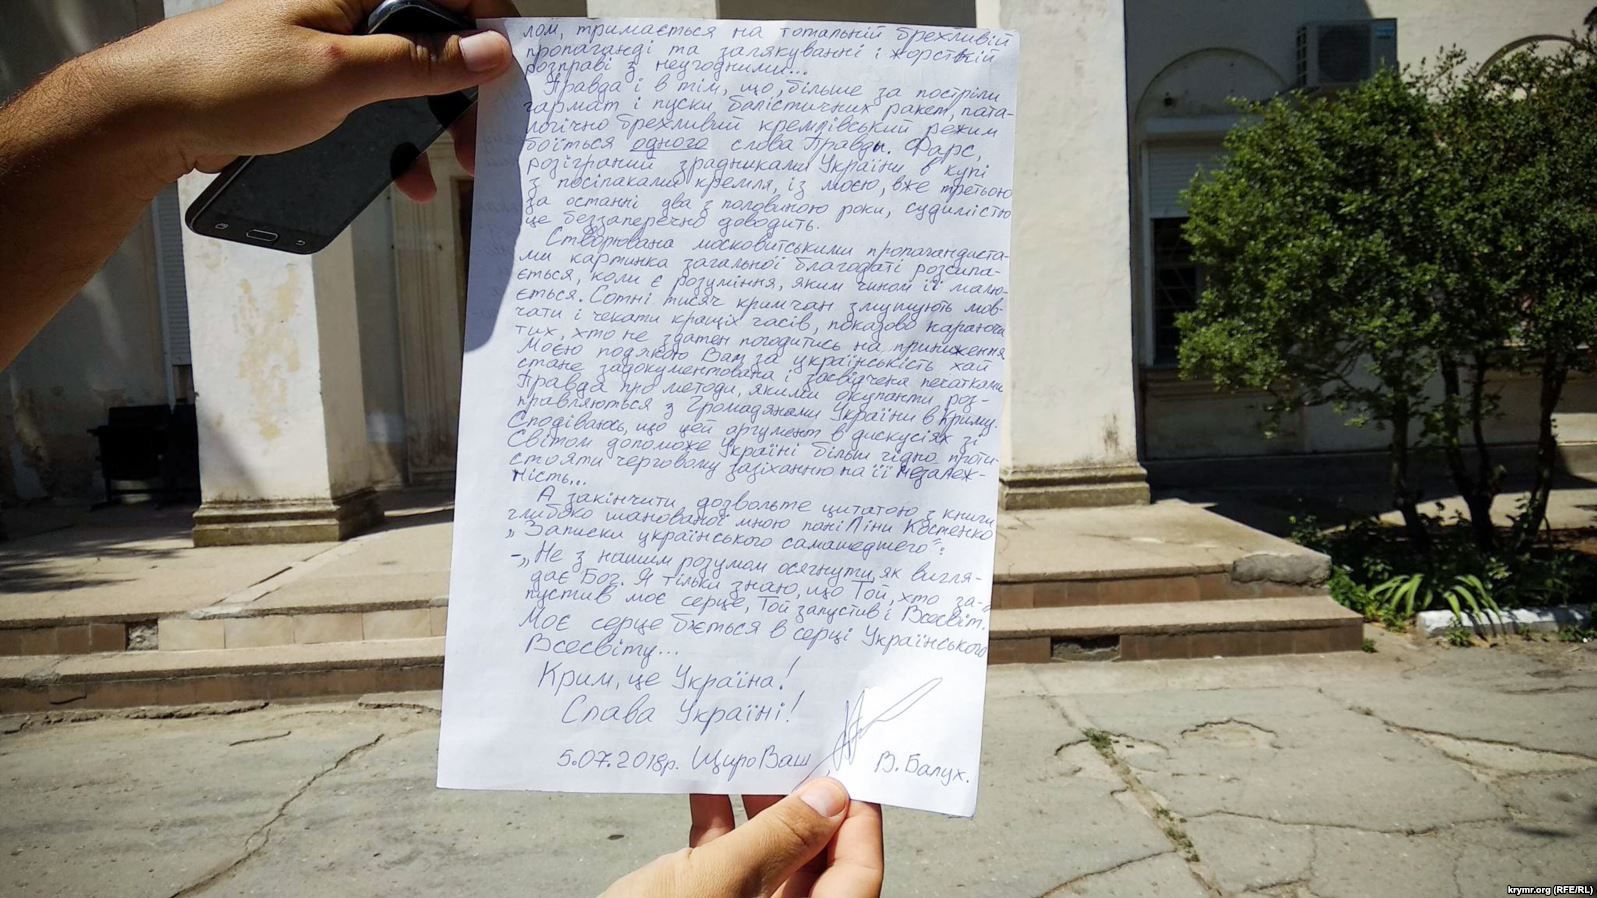 лом, тримається на тотальній брехливій
пропаганді та залякуванні і жорсткій
розправі з неугодними...
Правда і в тім, що, більше за постріли
гармат і пуски балістичних ракет, пата-
логічно брехливий кремлівський режим
боїться одного слова Правди. Фарс,
розіграний зрадниками України, в купі
з посіпаками кремля, із моєю, вже третьою
за останні два з половиною роки, судимістю
це беззаперечно доводить.
Створювана московитськими пропагандиста-
ми картинка загальної благодаті розсипа-
ється, коли є розуміння, яким чином її малю-
ється. Сотні тисяч кримчан змушують мов-
чати і чекати кращіх часів, показово караючи
тих, хто не здатен погодитись на приниження
Моєю подякою Вам за українськість хай
стане задокументована і засвідчена печатками
Правда про методи, якими окупанти роз-
правляються з Громадянами України в Криму.
Сподіваюсь, що цей аргумент в дискусіях зі
Світом допоможе Україні більш гідно проти-
стояти черговому зазіханню на її незалеж-
ність...
А закінчити дозвольте цитатою з книги
глибоко шанованої мною пані Ліни Костенко
„Записки українського самашедшего":
-„Не з нашим розумом осягнути, як вигля-
дає Бог. Я тільки знаю, що Той, хто за-
пустив моє серце, Той запустив і Всесвіт.
Моє серце б'ється в серці Українського
Всесвіту...
Крим, це Україна!
Слава Україні!
5.07.2018р. Щиро Ваш В. Балух.
krymr.org (RFE/RL)